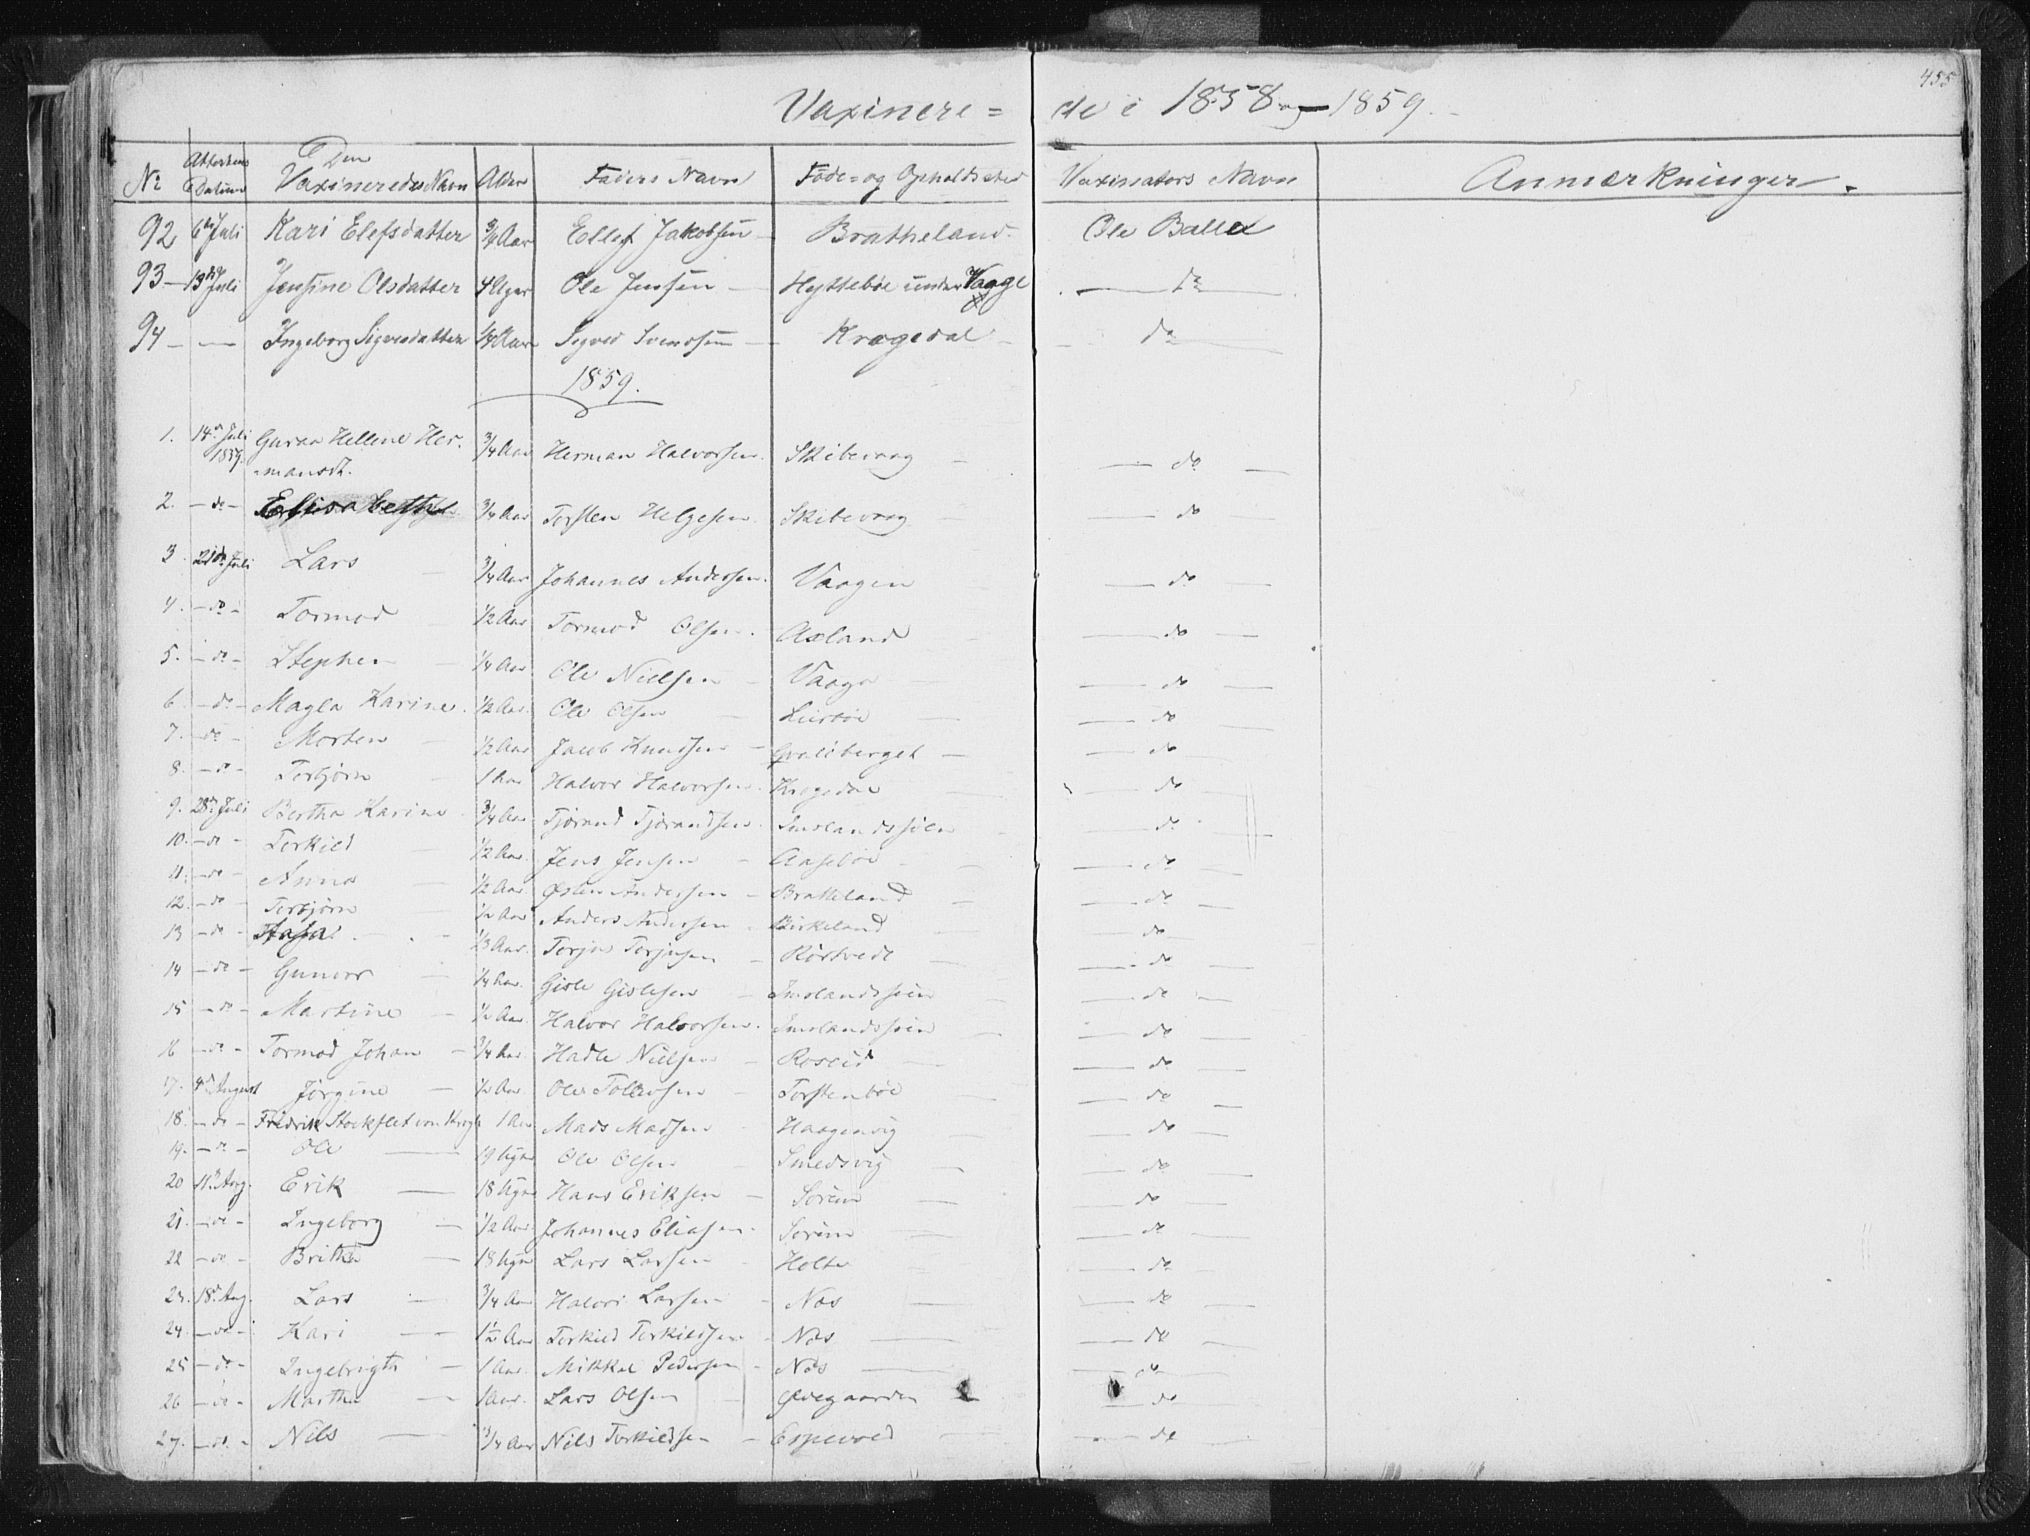 455
Vaxinere= de i 1858 og 1859.
No Attestens Datum Den Vaxineredes Navn Alder Faders Navn Føde= og Opholdssted Vaxinators Navn Anmærkninger.
92 6te Juli Kari Elefsdatter 3/4 Aar Ellef Jakobsen Bratheland Ole Balle
93 13de Juli Jensine Olsdatter 4 Uger Ole Jensen Hyttebøe under Vaage do
94 Ingeborg Sigvesdatter 1/4 Aar Sigved Svendsen Krogedal do
1859.
1. 14de Juli 1859. Guroa Hellene Her-mansdt. 3/4 Aar Herman Halvorsen Skibevaag do
2. do Elisabeth 3/4 Aar Torsten Helgesen Skibevaag do
3. 21de Juli Lars 3/4 Aar Johannes Andersen Vaagen do
4. do Tormod 1/2 Aar Tormod Olsen Axland do
5. do Stephen 1/4 Aar Ole Nielsen Vaage do
6. do Magla Karine 1/2 Aar Ole Olsen do
7. do Morten 1/2 Aar Jacob Knudsen Qvaliberget do
8. do Torbjørn 1 Aar Halvor Halvorsen Krogedal do
9. 28de Juli Bertha Karine 3/4 Aar Tjørand Tjørandsen Imslandssøen do
10. do Torkild 1/2 Aar Jens Jensen Aasebøe do
11. do Anna 1/2 Aar Østen Andersen Bratteland do
12. do Torbjørn 1/2 Aar Anders Andersen Birkeland do
13 do Aasa 1/3 Aar Torju Torjusen Rørtvedt do
14 do Gunvor 1/4 Aar Gisle Gislesen Imslandssøen do
15 do Martine 1/2 Aar Halvor Halvorsen Imslandssøen do
16 do Tormod Johan 3/4 Aar Hadle Nielsen Roseid do
17. 4de August Jørgine 1/2 Aar Ole Tollevsen Torstenbøe do
18. do Fredrik Stockflet von Krogh 1 Aar Mads Madsen Haagenvig do
19. do Ole 19 Uger Ole Olsen Smedsvig do
20 11te Aug. Erik 18 Uger Hans Eriksen Sørein do
21. do Ingeborg 1/2 Aar Johannes Eliasen Sørein do
22 do Britha 18 Uger Lars Larsen Holte do
23. 18de Aug. Lars 3/4 Aar Halvor Larsen Næs do
24. do Kari 1 1/2 Aar Torkild Torkildsen Næs do
25 do Ingebrigth 1 Aar Mikkel Pedersen Næs do
26 do Martha 1 Aar Lars Olsen Ødegaarden do
27. do Nils 1/4 Aar Nils Torkildsen Espevold do